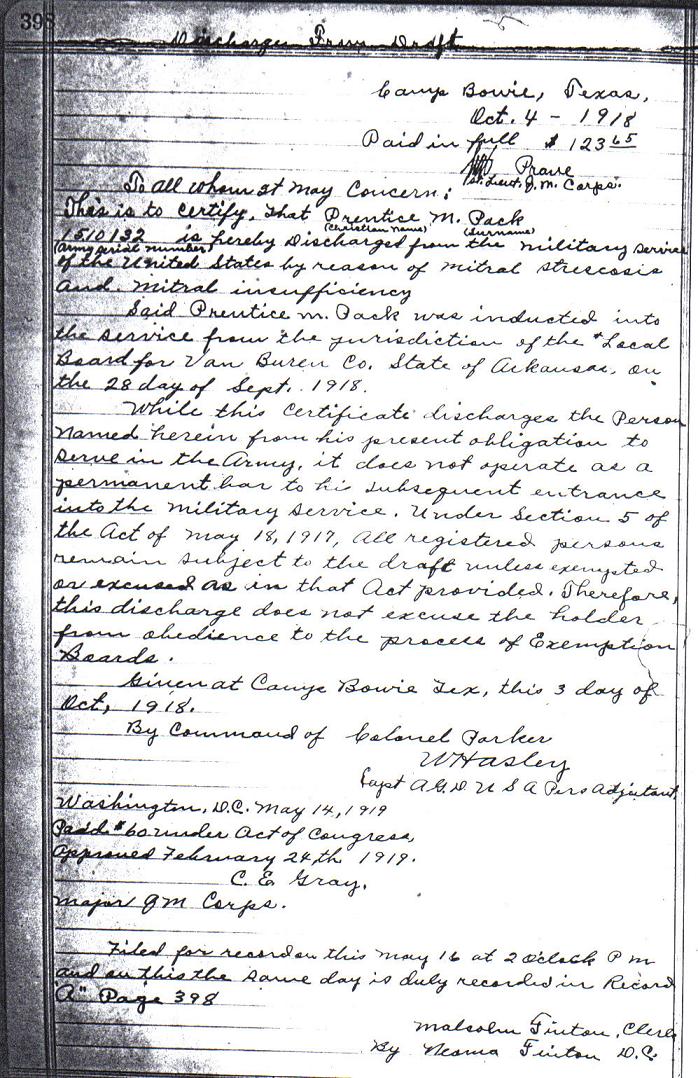 398
Discharges From Draft
Camp Bowie, Texas,
Oct. 4 - 1918
Paid in full $ 123 65
Prawe
1st. Lieut. Q. M. Corps.
To all whom it may Concern:
This is to certify, That Prentice M. Pack
(Christian name) (Surname)
1510132 is hereby Discharged from the military service
(Army serial number)
of the United States by reason of Mitral
and Mitral insufficiency
Said Prentice M. Pack was inducted into
the service from the jurisdiction of the "Local
Board for Van Buren Co. State of Arkansas, on
the 28 day of Sept. 1918.
While this Certificate discharges the Person
named herein from his present obligation to
serve in the Army, it does not operate as a
permanent bar to hi subsequent entrance
into the military service. Under Section 5 of
the Act of May 18, 1917, All registered persons
remain subject to the draft unless exempted
or excused as in that Act provided. Therefore,
this discharge does not excuse the holder
from obedience to the process of Exemption
Boards.
Given at Camp Bowie Tex, this 3 day of
Oct, 1918.
By Command of Colonel Parker
W Hasley
Capt A.G.D. U S A Pers Adjutant.
Washington, D.C. May 14, 1919
Paid $60 under Act of Congress,
Approved February 24th 1919.
C. E. Gray,
Major QM Corps.
Filed for record on this May 16 at 2 Oclock P m
and on this the same day is duly recorded in Record
"A" Page 398
Malsolm Finton, Clerk
By Neoma Finton D.C.